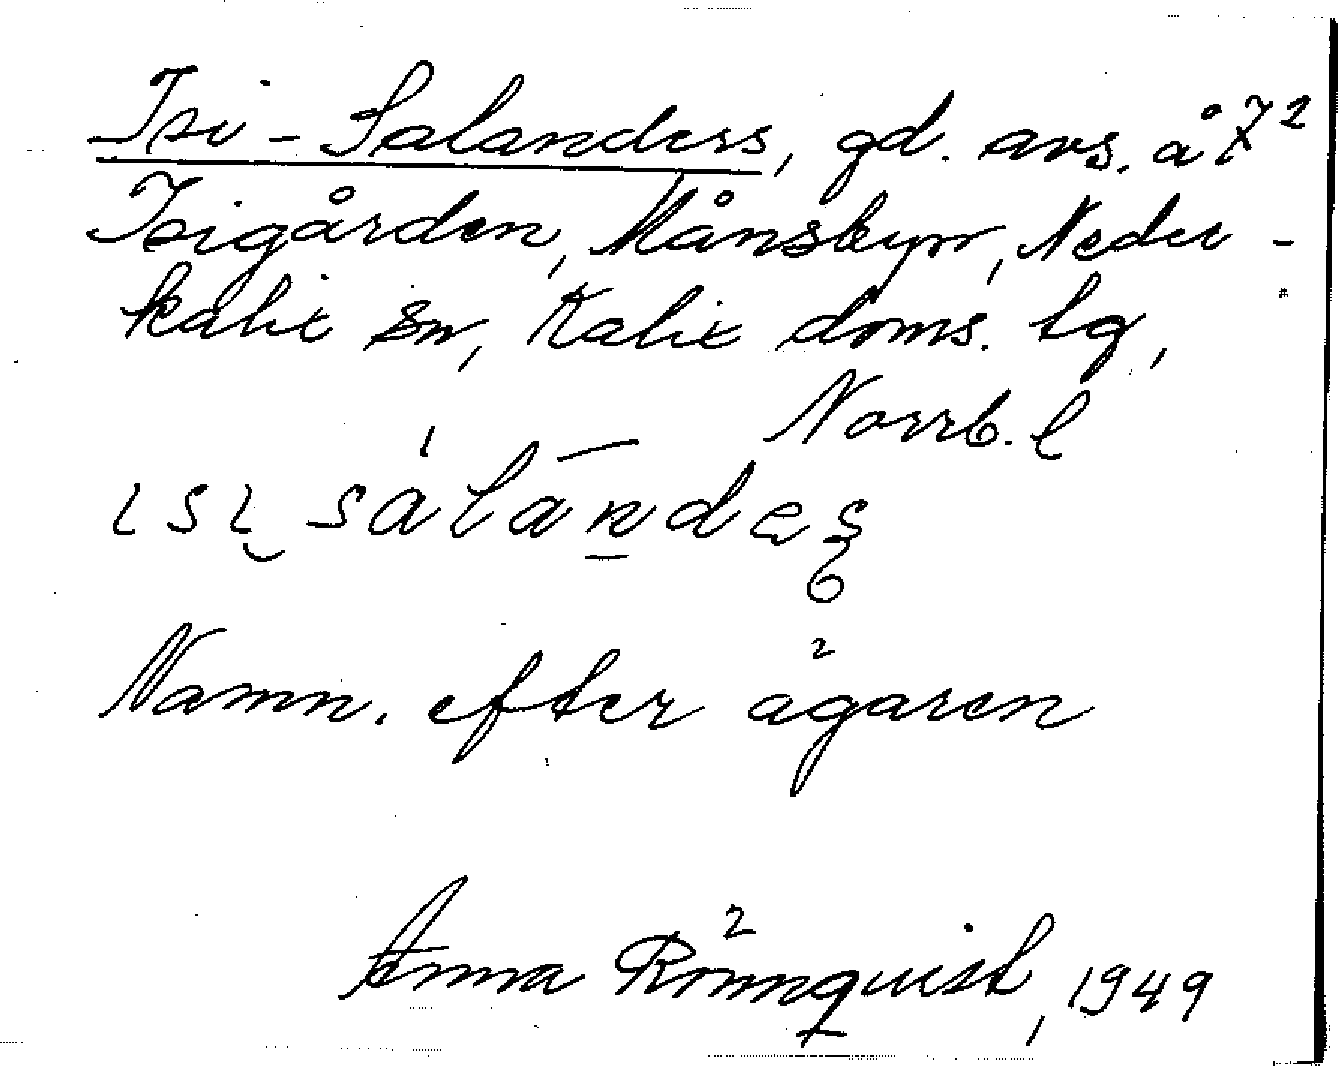 Isi-Salanders, gd. avs. å 7²
Isigården, Månsbyn, Neder-
kalix sn, Kalix doms. lg,
Norrb. l
ısı̮ sálān̲des̥
Namn. efter ägaren
Anna Rönnquist, 1949